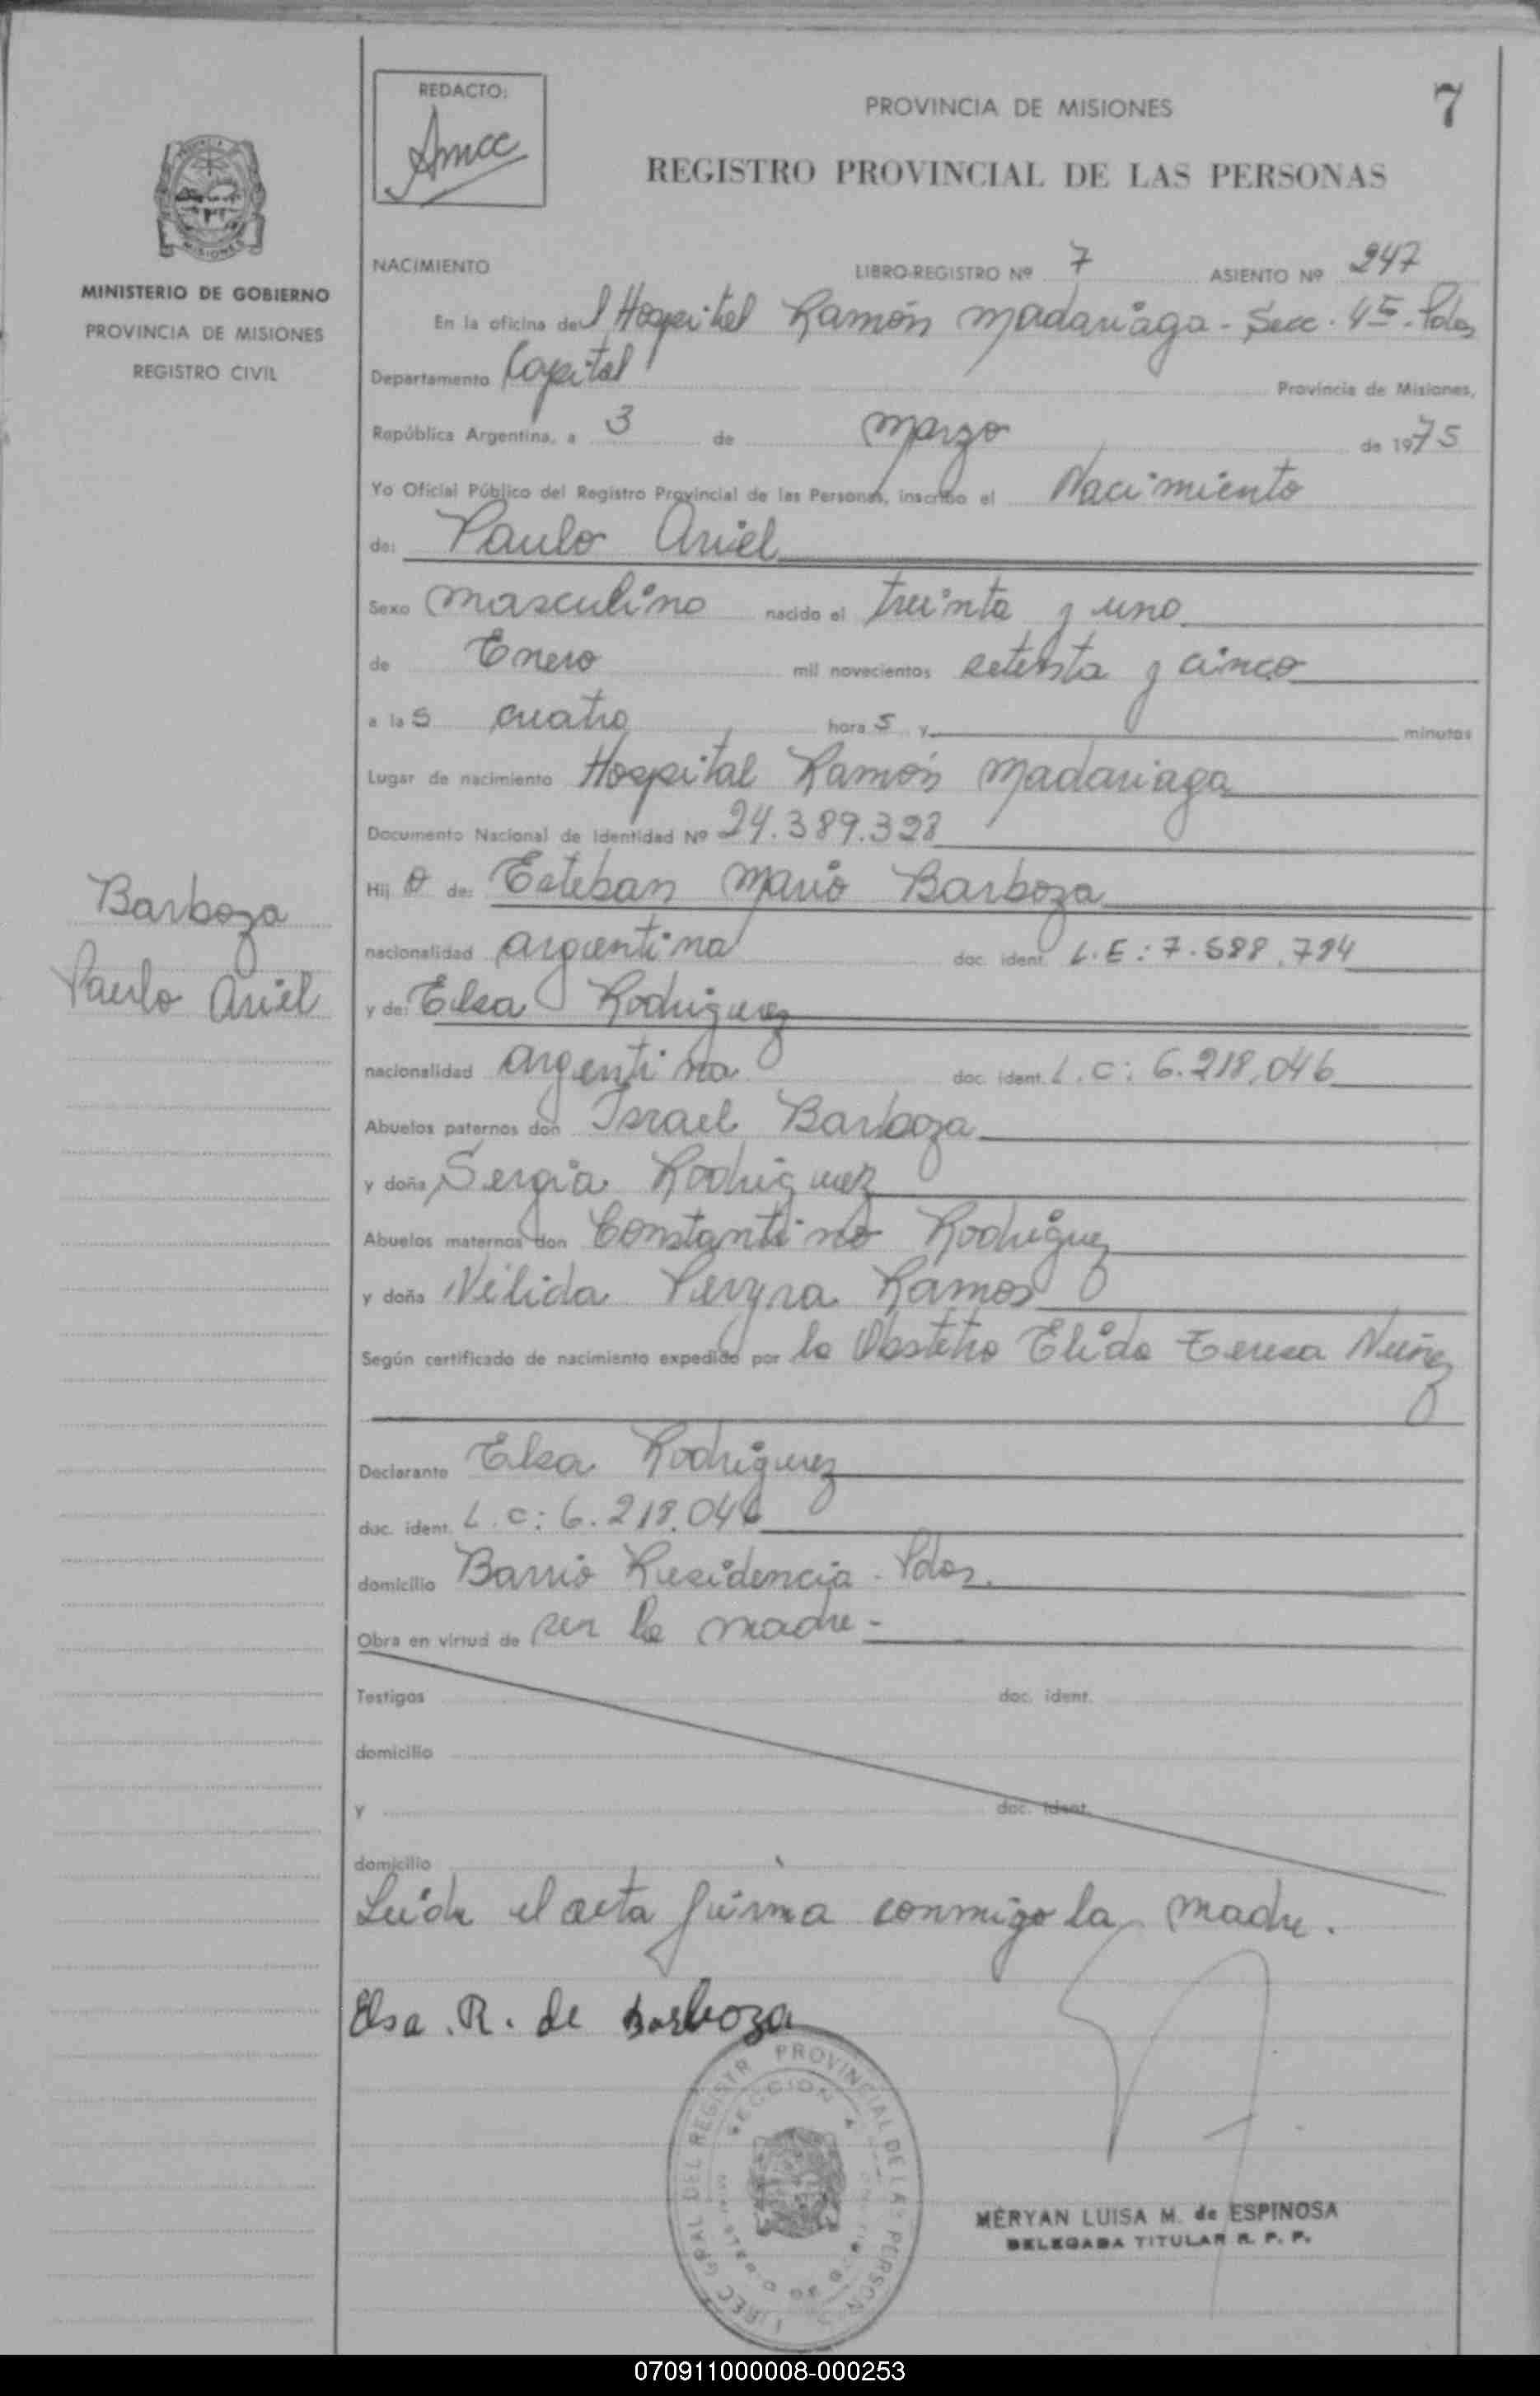 REDACTO:
PROVINCIA DE MISIONES
7
REGISTRO PROVINCIAL DE LAS PERSONAS
MISIONES
MINISTERIO DE GOBIERNO
PROVINCIA DE MISIONES
REGISTRO CIVIL
NACIMIENTO LIBRO-REGISTRO Nº 7 ASIENTO Nº 247
En la oficina del Hospital Ramón Madariaga - Secc. 45 - Pdas
Departamento Capital Provincia de Misiones,
República Argentina, a 3 de marzo de 1975
Yo Oficial Público del Registro Provincial de las Personas, inscribo el Nacimiento
de: Paulo Ariel
Sexo masculino nacido el treinta y uno
de Enero mil novecientos setenta y cinco
a las cuatro horas y minutos
Lugar de nacimiento Hospital Ramón Madariaga
Documento Nacional de Identidad Nº 24.389.328
Hijo de: Esteban Mario Barboza
Barboza
Paulo Ariel
nacionalidad argentina doc. ident. L.E: 7.588.794
y de: Elsa Rodriguez
nacionalidad argentina doc. ident. L.C: 6.218.046
Abuelos paternos don Israel Barboza
y doña Sergia Rodriguez
Abuelos maternos don Constantino Rodriguez
y doña Nélida Pereyra Ramos
Según certificado de nacimiento expedido por la Obstetra Elida Teresa Nuñez
Declarante Elsa Rodriguez
doc. ident. L.C: 6.218.046
domicilio Barrio Residencia - Pdas.
Obra en virtud de ser la madre -
Testigos doc. ident.
domicilio
y doc. ident.
domicilio
Leida el acta firma conmigo la madre.
Elsa . R. de Barboza
DIREC GRAL DEL REGISTR PROVINCIAL DE LAS PERSON
SECCION
MERYAN LUISA M. de ESPINOSA
DELEGADA TITULAR R. P. P.
070911000008-000253